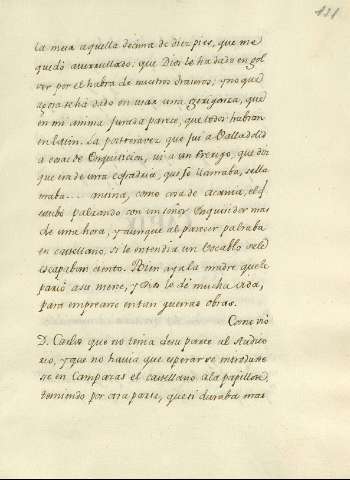 131
la mera aquella decima de diez pies, que me
quedò aturrullado: que Dios le ha dado en gol
ver por el habra de nuestros
aora se há dado en usar una gerigonza, que
en mi anima jurada parece, que todos habran
en latin. La postrera vez que fui a Valladolid
a cosas de Enquisicion, vi a un Preago, que dix
que era de una cofradia, que se llamaba, ò ella
maba... mina, como cosa de acamia, el
estubo palrando con un señor Inquisidor mas
de una hora, y aunque al parecer palraba
en castellano, si le entendia un Vocablo se le
escapaban ciento. Bien aya la madre que le
pariò a su merce, y Dios lo dè mucha vida,
para emprearse en tan guenas obras.
Como viò
D. Carlos que no tenia de su parte al Audito
rio, y que no havia que esperar se introduxe
se en Campazas el castellano a la papillon,
temiendo por otra parte, que si duraba mas